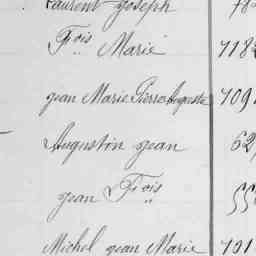 Laurent Joseph 78
Fois Marie 7182
Jean Marie Pierre Auguste 709
Augustin Jean 62
Jean Fois 55
Michel Jean Marie 701